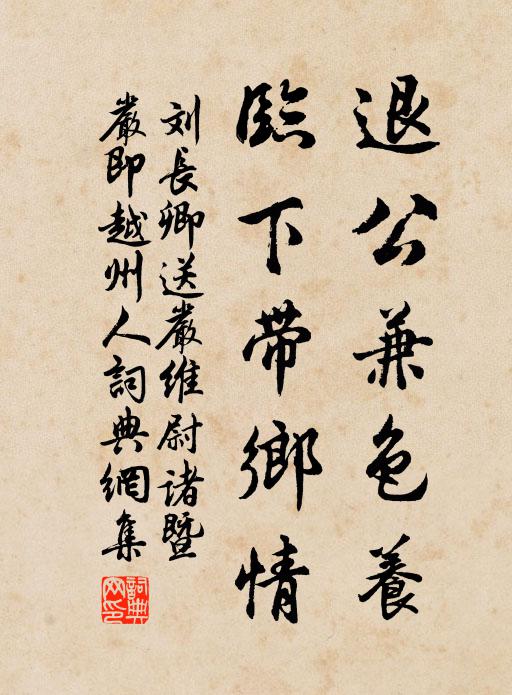 退公兼色養
臨下帶鄉情
刘長卿送嚴維尉诸暨
嚴即越州人詞典網集
詞典
网印